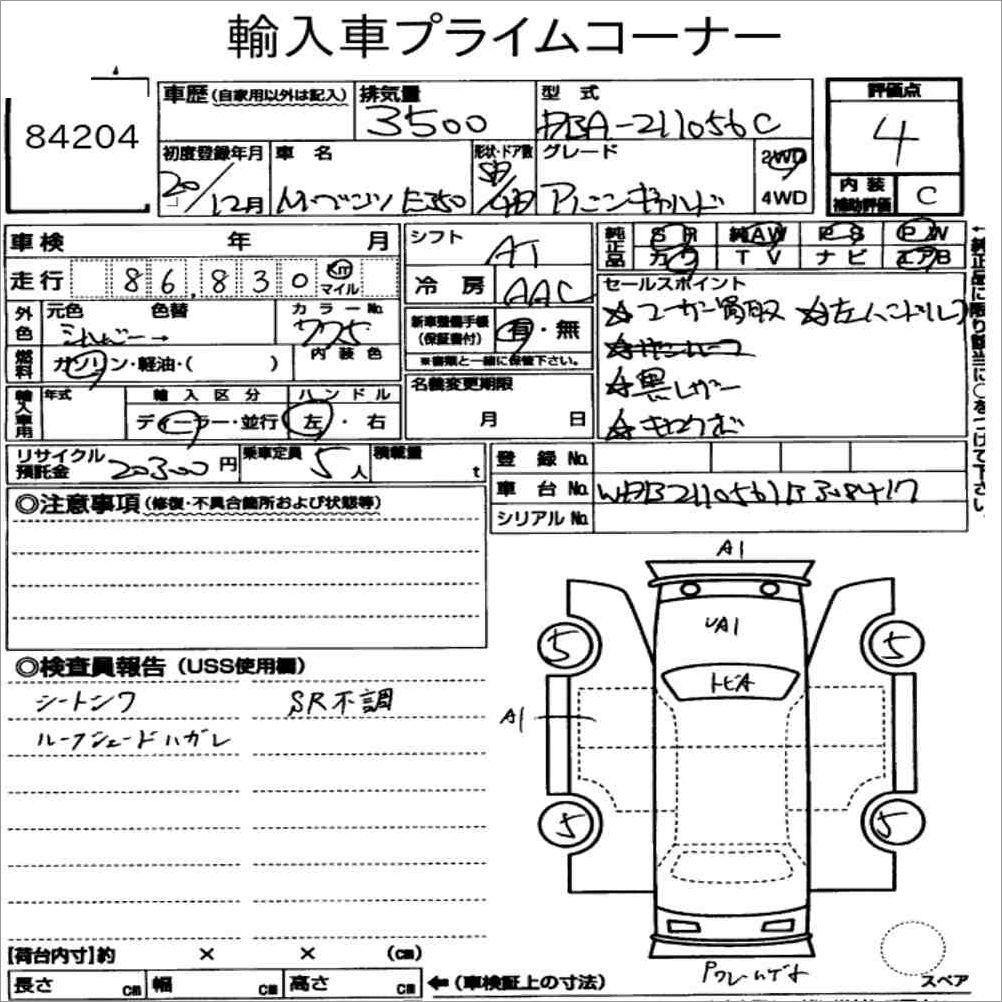 輸入車プライムコーナー
84204
車歴(自家用以外は記入)
排気量
3500
型式
DBA-211056C
評価点
4
初度登録年月
20/12月
車名
M・ベンツ E350
形状・ドア数
SD/4D
グレード
アバンギャルド
2WD
4WD
内装補助評価
C
車検 年 月
シフト
AT
純正品
SR 純AW PS PW
カワ TV ナビ エアB
走行
86,830
Km マイル
冷房
AAC
セールスポイント
☆ユーザー買取 ☆左ハンドル
☆黒レザー
外色
元色 色替
シルバー→
カラーNo.
775
新車整備手帳(保証書付)
有・無
※書類と一緒に保管下さい。
燃料
ガソリン・軽油・( )
内装色
名義変更期限
月 日
輸入車用
年式
輸入区分
ディーラー・並行
ハンドル
左・右
リサイクル預託金
20300円
乗車定員
5人
積載量
t
登録No.
車台No.
WDB2110561B308417
シリアルNo.
↑純正品に限り該当に○をつけて下さい
◎注意事項(修復・不具合箇所および状態等)
◎検査員報告(USS使用欄)
シートシワ
SR不調
ルーフシェードハガレ
A1
A1
トビA
A1
5
5
5
5
[荷台内寸]約 × × (cm)
長さ cm 幅 cm 高さ cm
←(車検証上の寸法)
スペア